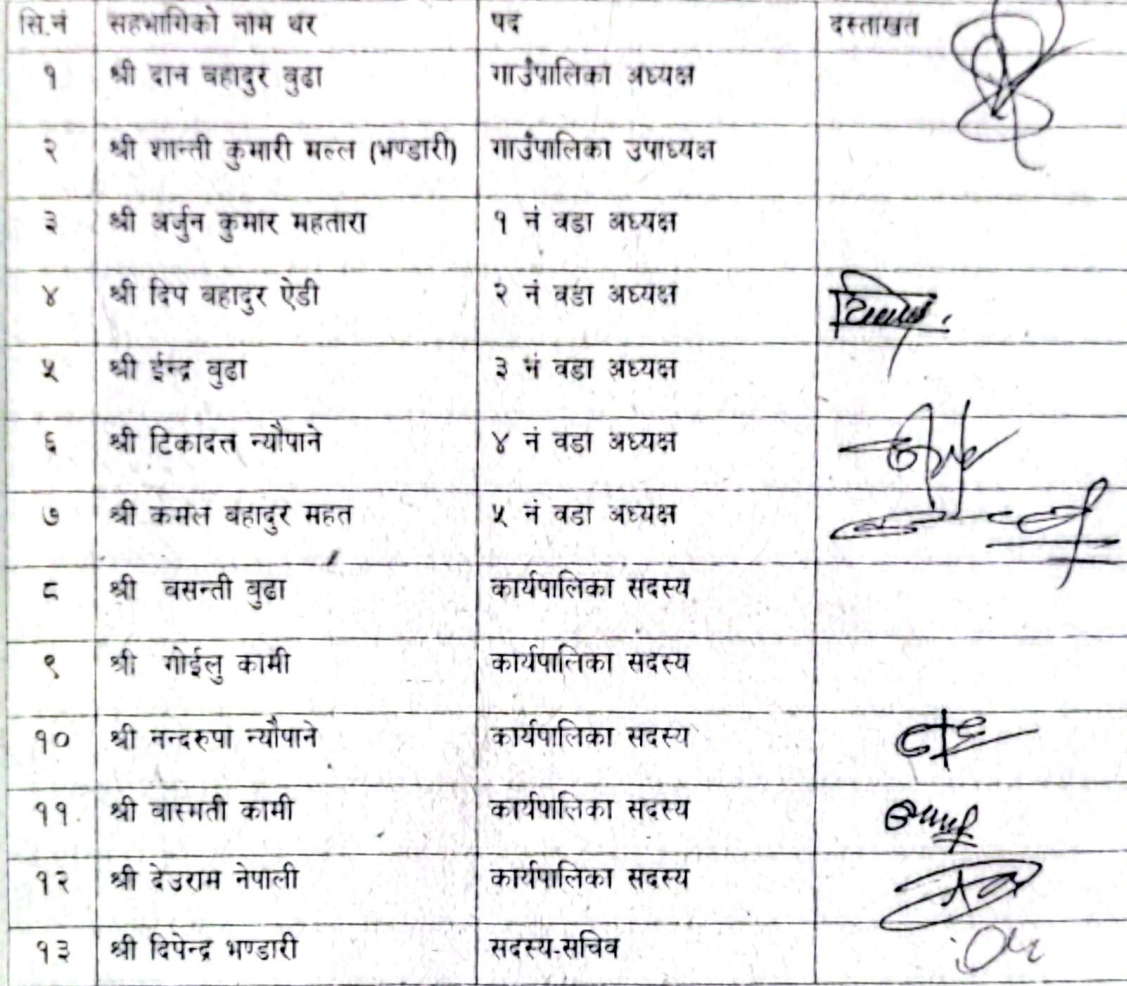 सि.नं सहभागिको नाम थर पद दस्ताखत
१ श्री दान बहादुर बुढा गाउँपालिका अध्यक्ष
२ श्री शान्ती कुमारी मल्ल (भण्डारी) गाउँपालिका उपाध्यक्ष
३ श्री अर्जुन कुमार महतारा १ नं वडा अध्यक्ष
४ श्री दिप बहादुर ऐडी २ नं वडा अध्यक्ष
५ श्री ईन्द्र बुढा ३ नं वडा अध्यक्ष
६ श्री टिकादत्त न्यौपाने ४ नं वडा अध्यक्ष
७ श्री कमल बहादुर महत ५ नं वडा अध्यक्ष
८ श्री वसन्ती बुढा कार्यपालिका सदस्य
९ श्री गोईलु कामी कार्यपालिका सदस्य
१० श्री नन्दरुपा न्यौपाने कार्यपालिका सदस्य
११ श्री वास्मती कामी कार्यपालिका सदस्य
१२ श्री देउराम नेपाली कार्यपालिका सदस्य
१३ श्री दिपेन्द्र भण्डारी सदस्य-सचिव